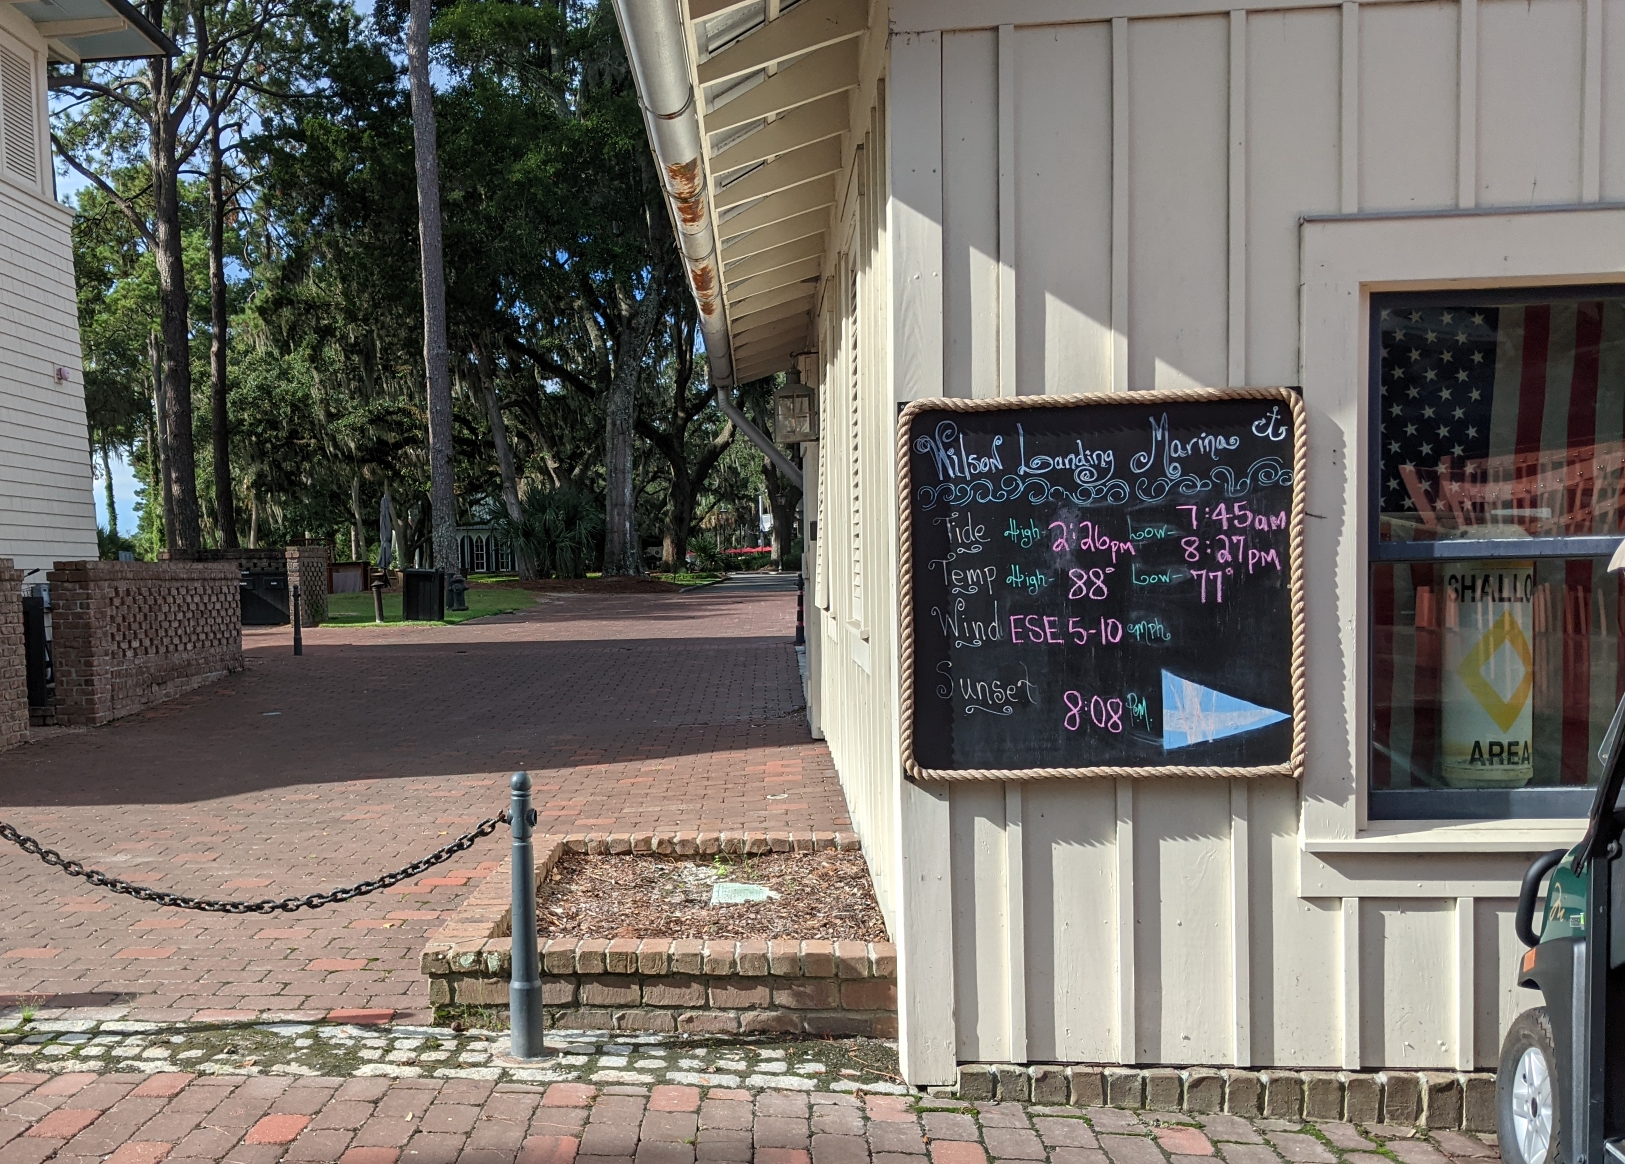 Wilson Landing Marina
Tide High- 2:26pm Low- 7:45am
8:27pm
Temp High- 88° Low- 77°
Wind ESE 5-10 mph
Sunset 8:08 P.M.
SHALLO
AREA